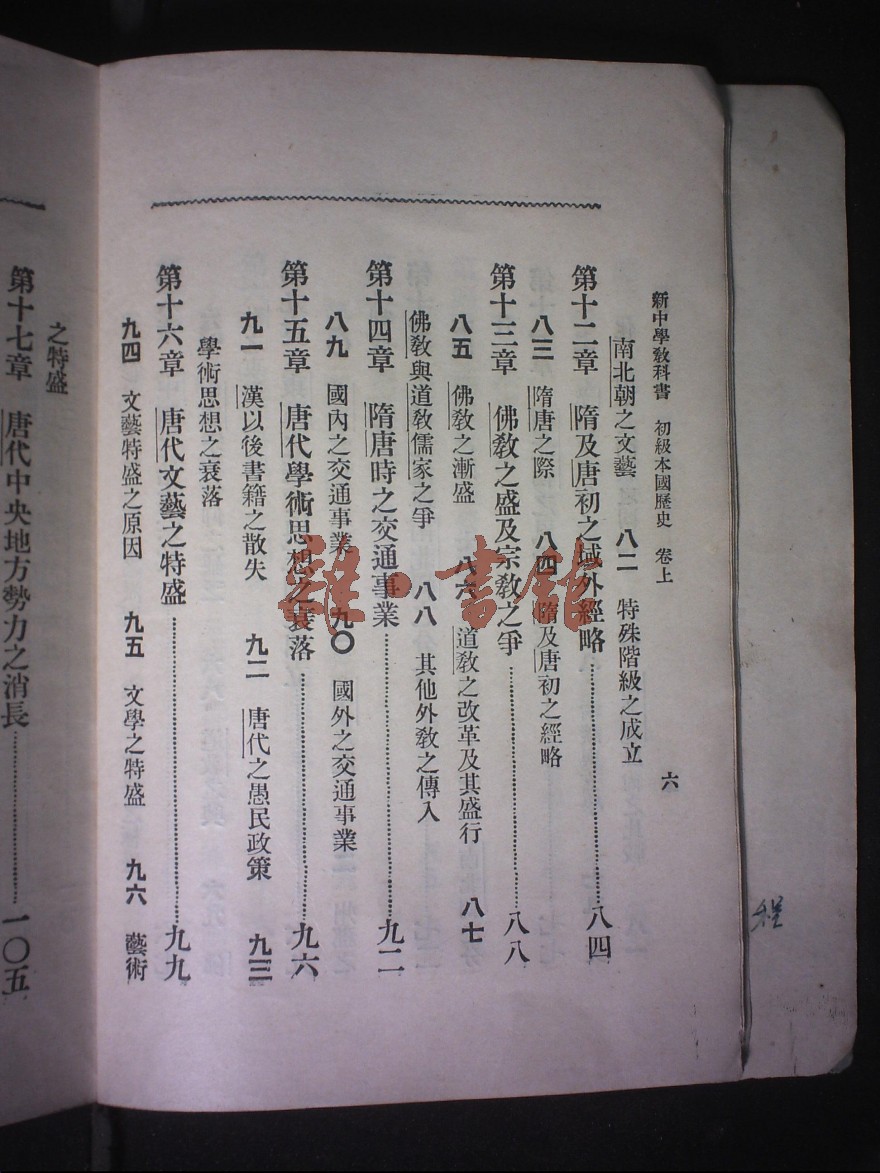 新中學教科書 初級本國歷史 卷上 六
南北朝之文藝 八二 特殊階級之成立
第十二章 隋及唐初之域外經略…………八四
八三 隋唐之際 八四 隋及唐初之經略
第十三章 佛教之盛及宗教之爭…………八八
八五 佛教之漸盛 八六 道教之改革及其盛行 八七
佛教與道教儒家之爭 八八 其他外教之傳入
第十四章 隋唐時之交通事業…………九二
八九 國內之交通事業 九〇 國外之交通事業
第十五章 唐代學術思想之衰落…………九六
九一 漢以後書籍之散失 九二 唐代之愚民政策 九三
學術思想之衰落
第十六章 唐代文藝之特盛…………九九
九四 文藝特盛之原因 九五 文學之特盛 九六 藝術
之特盛
第十七章 唐代中央地方勢力之消長…………一〇五
雜·書館
程